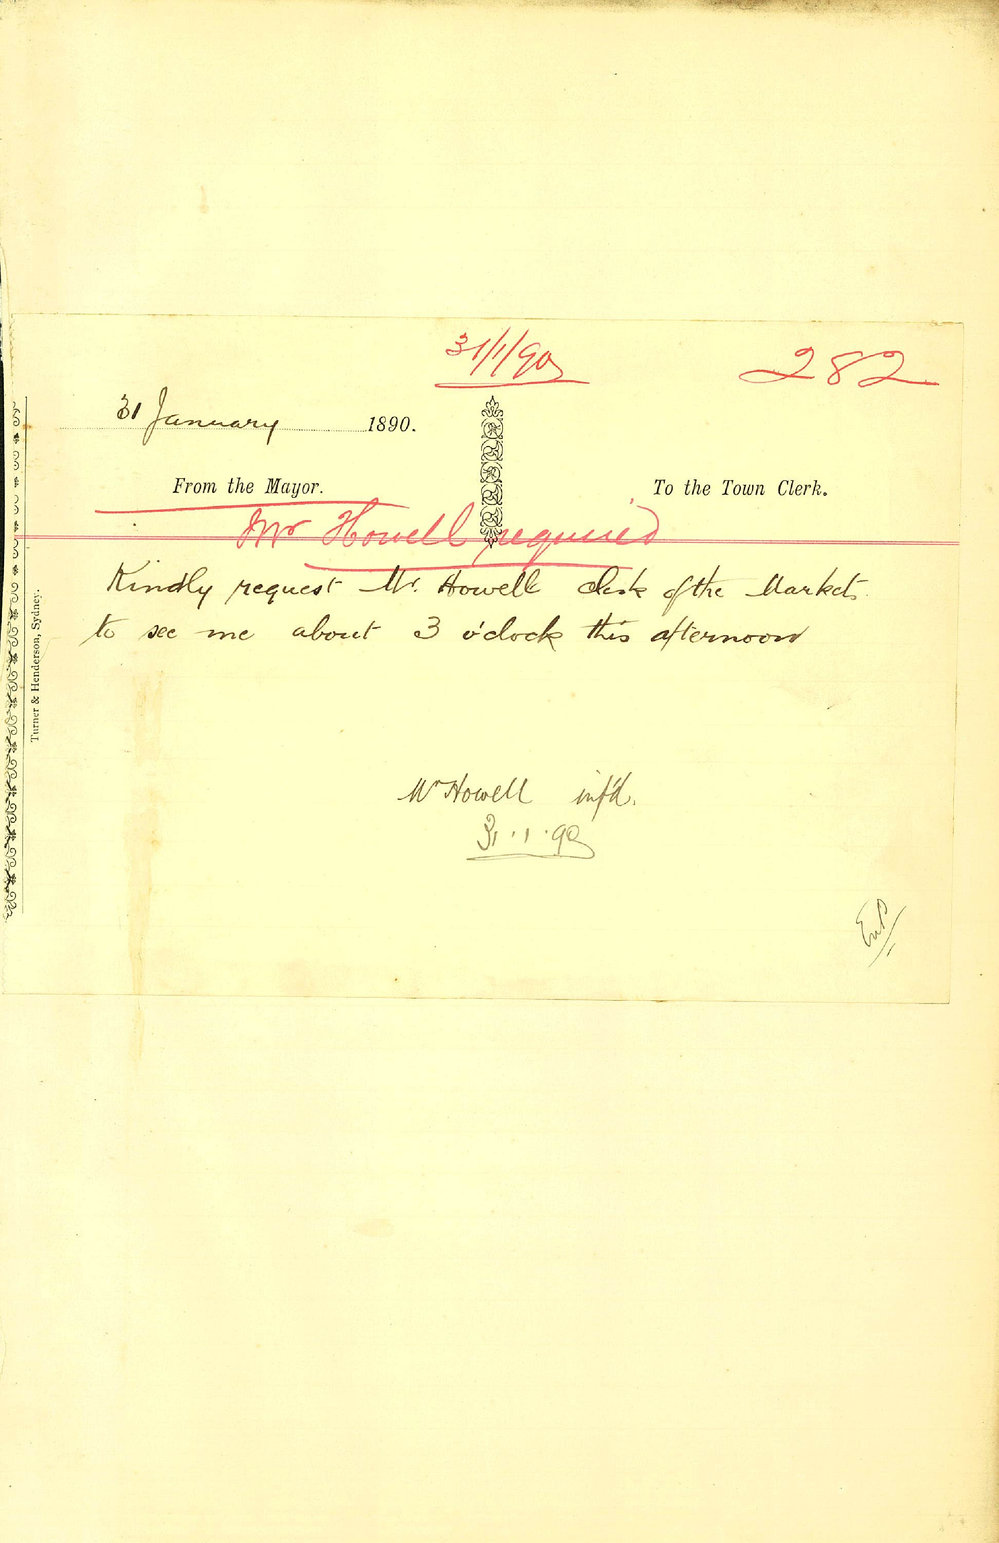 31/1/90
282
31 January 1890.
From the Mayor.
To the Town Clerk.
Mr Howell required
Kindly request Mr. Howell Clerk of the Markets
to see me about 3 o'clock this afternoon
Mr Howell inf'd.
31.1.90
Turner & Henderson, Sydney.